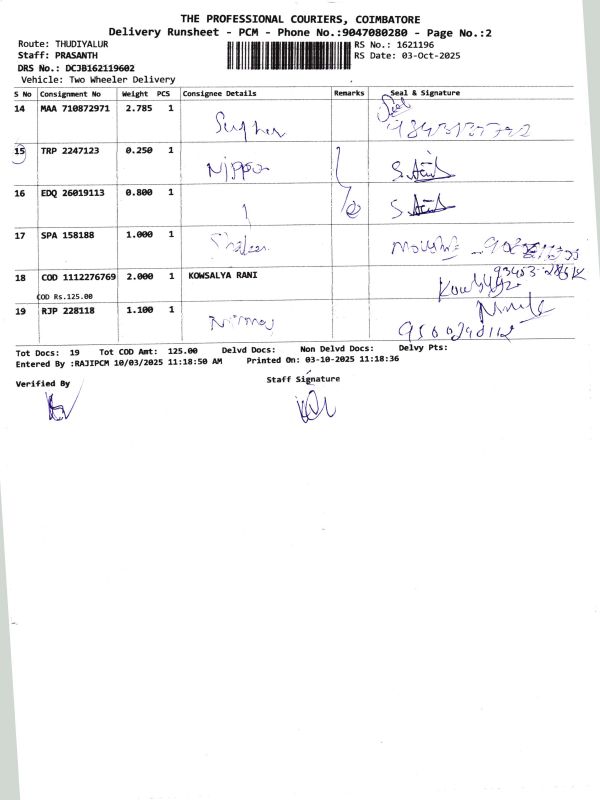 THE PROFESSIONAL COURIERS, COIMBATORE
Delivery Runsheet - PCM - Phone No.:9047080280 - Page No.:2
Route: THUDIYALUR
RS No.: 1621196
Staff: PRASANTH
RS Date: 03-Oct-2025
DRS No.: DCJB162119602
Vehicle: Two Wheeler Delivery
S No Consignment No Weight PCS Consignee Details Remarks Seal & Signature
14 MAA 710872971 2.785 1
Seal
15 TRP 2247123 0.250 1
Nippon
16 EDQ 26019113 0.800 1
17 SPA 158188 1.000 1
18 COD 1112276769 2.000 1 KOWSALYA RANI
COD Rs.125.00
19 RJP 228118 1.100 1
Tot Docs: 19 Tot COD Amt: 125.00 Delvd Docs: Non Delvd Docs: Delvy Pts:
Entered By :RAJIPCM 10/03/2025 11:18:50 AM Printed On: 03-10-2025 11:18:36
Verified By
Staff Signature